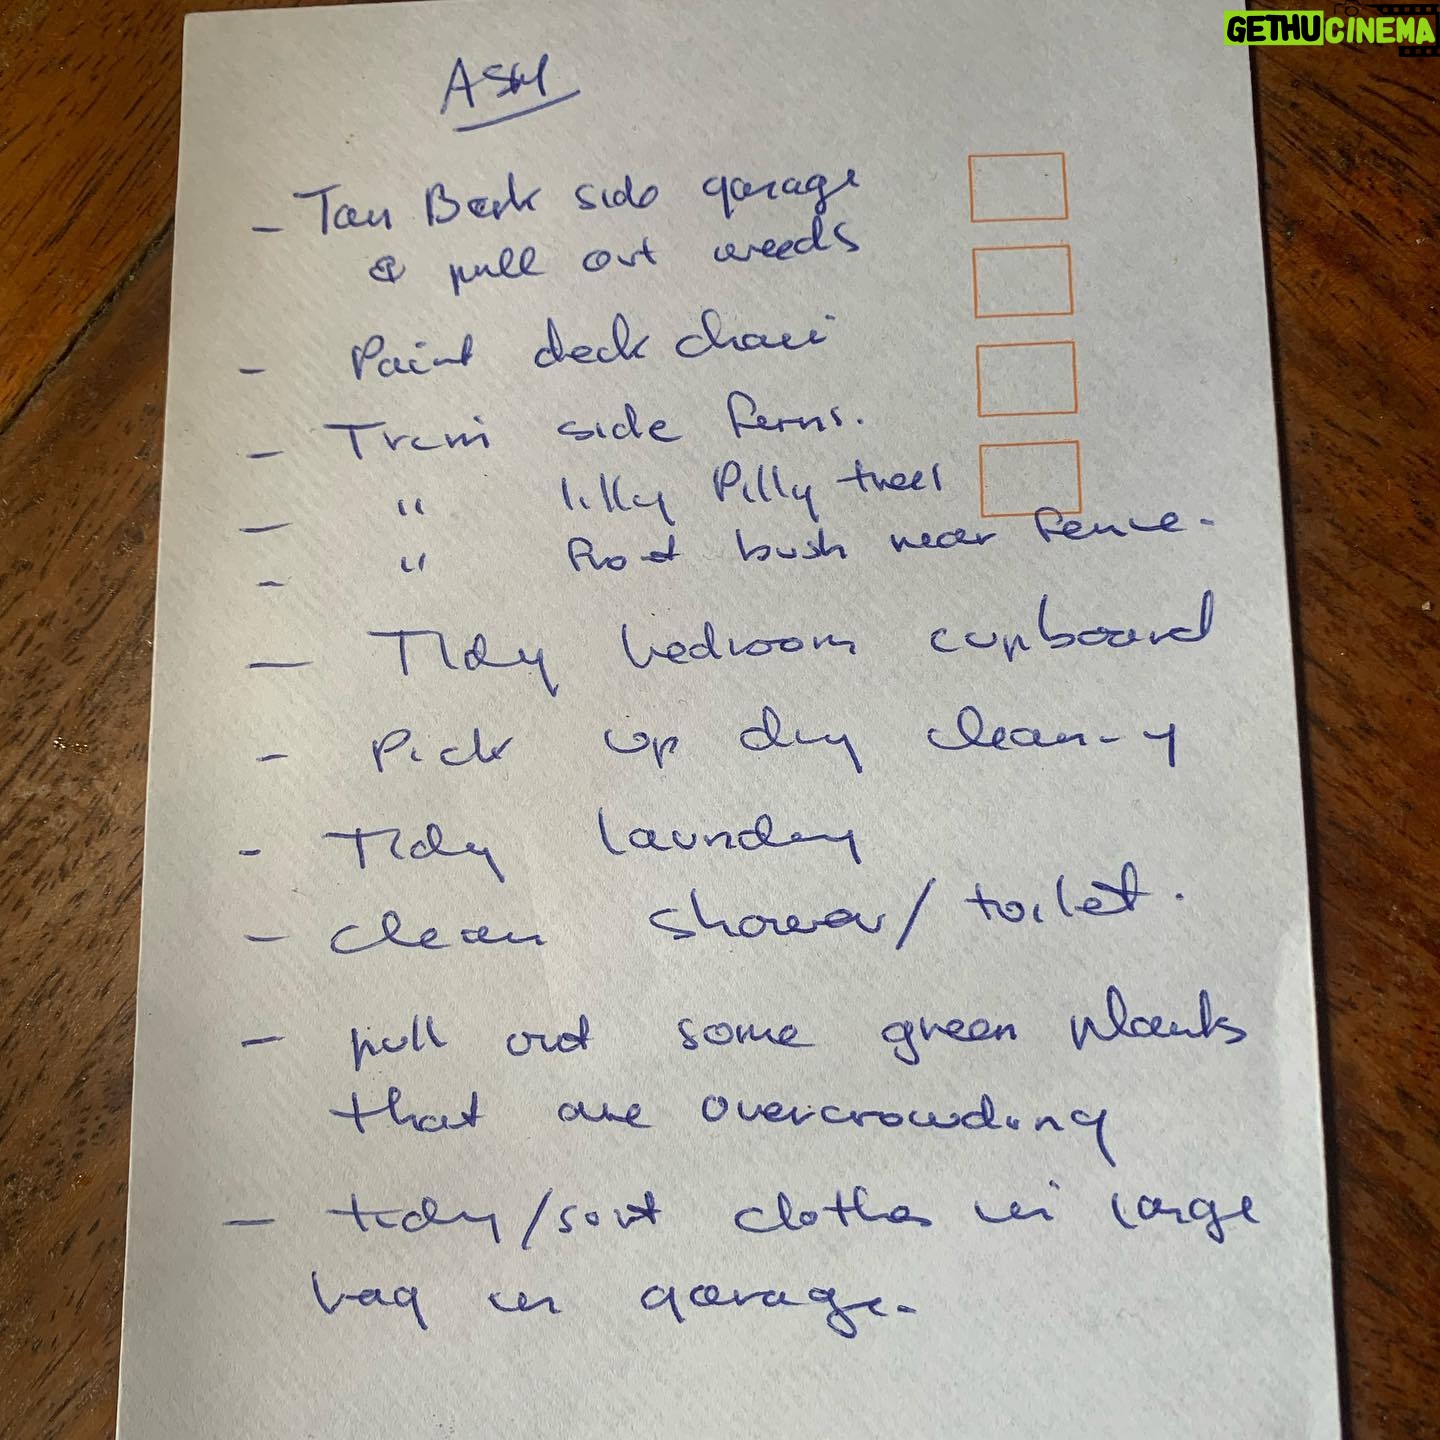 GETHUCINEMA
ASH
- Tan Bark side garage
& pull out weeds
- Paint deck chair
- Trim side ferns.
- " lilly Pilly trees
- " front bush near fence.
- Tidy bedroom cupboard
- Pick up dry cleaning
- Tidy laundry
- clean shower/toilet.
- pull out some green plants
that are overcrowding
- tidy/sort clothes in large
bag in garage.